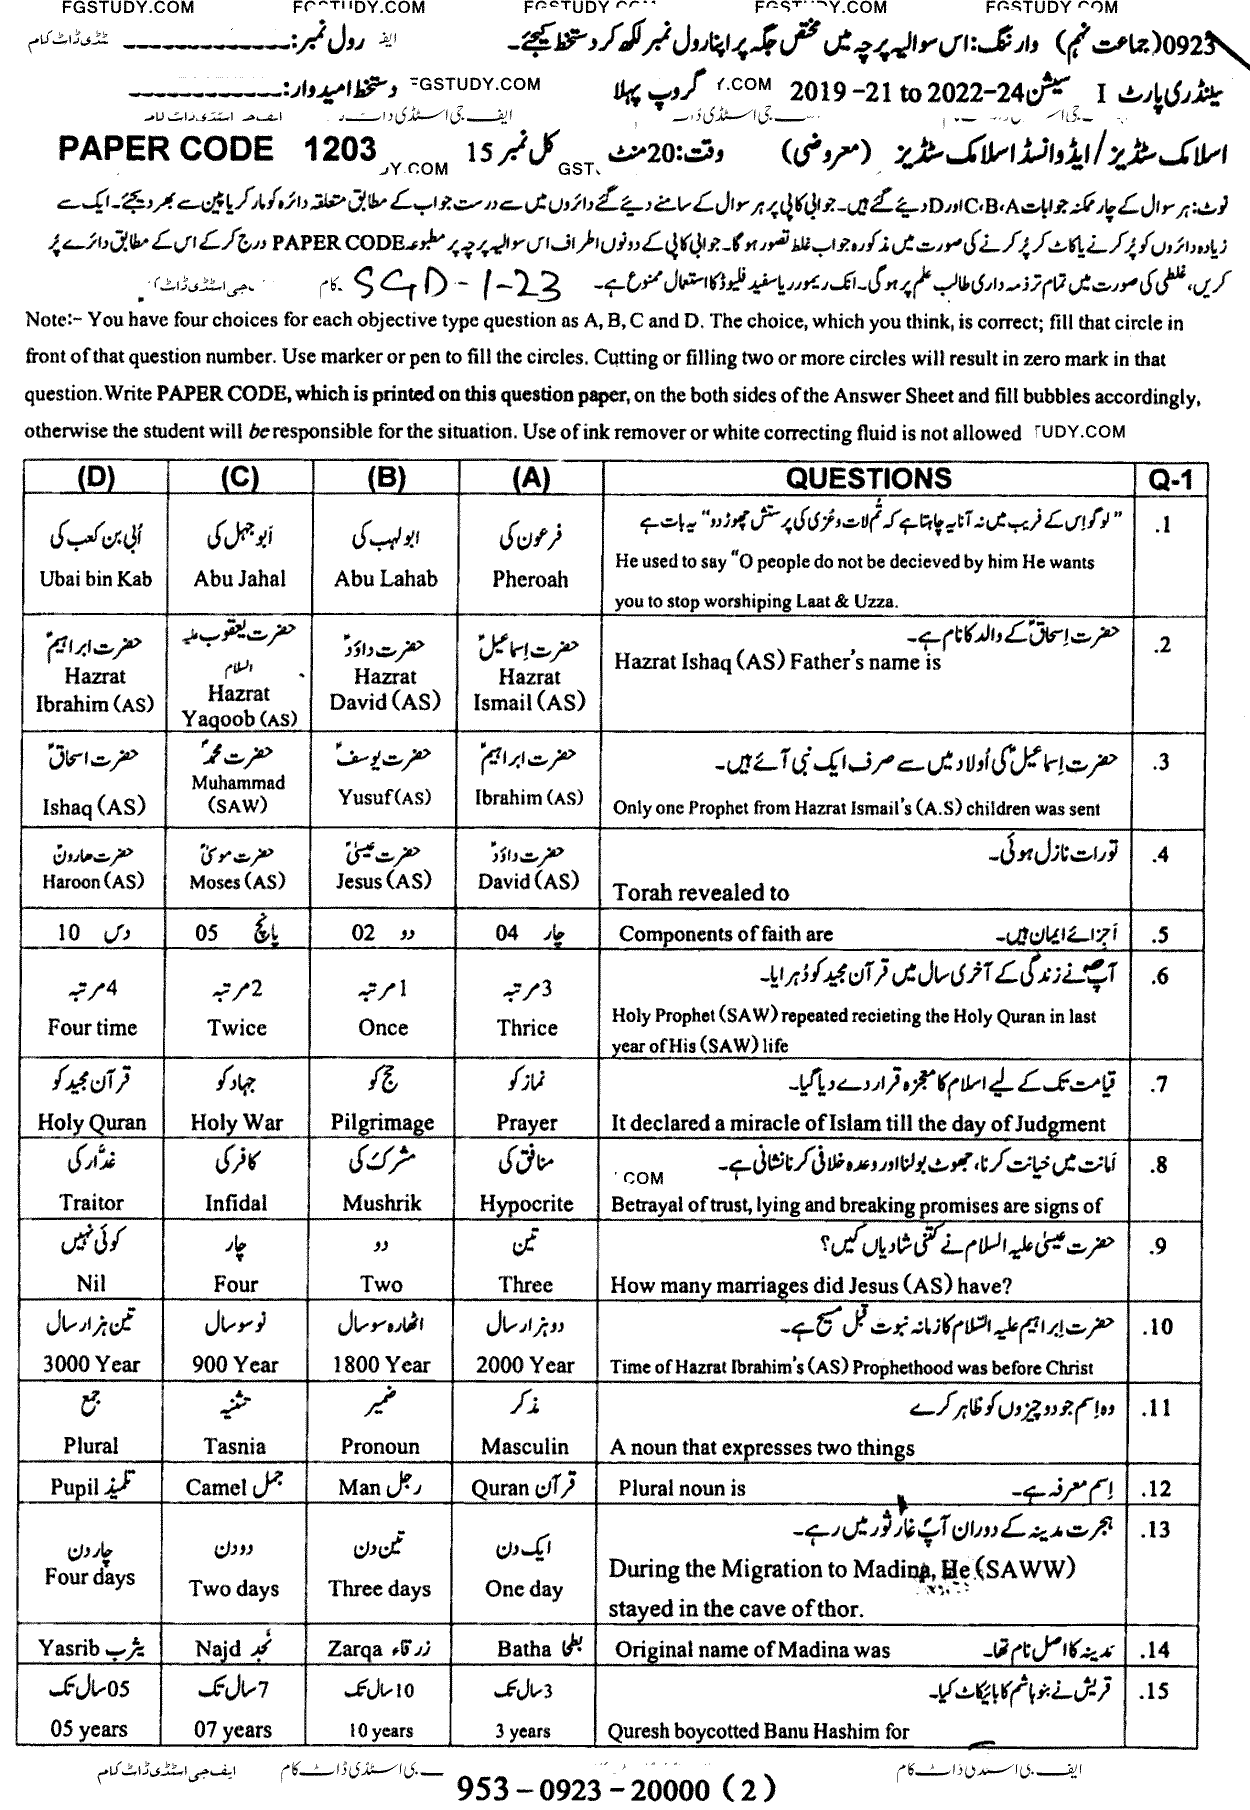 FGSTUDY.COM FGSTUDY.COM FGSTUDY.COM FGSTUDY.COM FGSTUDY.COM
0923(جماعت نہم) وارننگ: اس سوالیہ پرچہ میں مختص جگہ پر اپنا رول نمبر لکھ کر دستخط کیجئے۔ رول نمبر:
سیکنڈری پارٹ I سیشن 2019-21 to 2022-24 گروپ پہلا دستخط امیدوار: FGSTUDY.COM
اسلامک سٹڈیز/ایڈوانسڈ اسلامک سٹڈیز (معروضی) وقت: 20 منٹ کل نمبر 15 PAPER CODE 1203
نوٹ: ہر سوال کے چار ممکنہ جوابات C،B،A اور D دیئے گئے ہیں۔ جوابی کاپی پر ہر سوال کے سامنے دیئے گئے دائروں میں سے درست جواب کے مطابق متعلقہ دائرہ کو مارکر یا پین سے بھر دیجئے۔ ایک سے
زیادہ دائروں کو پُر کرنے یا کاٹ کر پُر کرنے کی صورت میں مذکورہ جواب غلط تصور ہوگا۔ جوابی کاپی کے دونوں اطراف اس سوالیہ پرچہ پر مطبوعہ PAPER CODE درج کر کے اس کے مطابق دائرے پُر
کریں، غلطی کی صورت میں تمام تر ذمہ داری طالب علم پر ہوگی۔ انک ریمور یا سفید فلیوڈ کا استعمال ممنوع ہے۔ SGD-1-23
Note:- You have four choices for each objective type question as A, B, C and D. The choice, which you think, is correct; fill that circle in
front of that question number. Use marker or pen to fill the circles. Cutting or filling two or more circles will result in zero mark in that
question. Write PAPER CODE, which is printed on this question paper, on the both sides of the Answer Sheet and fill bubbles accordingly,
otherwise the student will be responsible for the situation. Use of ink remover or white correcting fluid is not allowed
(D) (C) (B) (A) QUESTIONS Q-1
اُبی بن کعب کی ابوجہل کی ابولہب کی فرعون کی "لوگو اِس کے فریب میں نہ آنا یہ چاہتا ہے کہ تُم لات و عُزی کی پرستش چھوڑ دو" یہ بات ہے .1
Ubai bin Kab Abu Jahal Abu Lahab Pheroah He used to say "O people do not be decieved by him He wants
you to stop worshiping Laat & Uzza.
حضرت ابراہیمؑ حضرت یعقوب علیہ السلام حضرت داؤدؑ حضرت اسماعیلؑ حضرت اسحاقؑ کے والد کا نام ہے۔ .2
Hazrat Ibrahim (AS) Hazrat Yaqoob (AS) Hazrat David (AS) Hazrat Ismail (AS) Hazrat Ishaq (AS) Father's name is
حضرت اسحاقؑ حضرت محمدؐ حضرت یوسفؑ حضرت ابراہیمؑ حضرت اسماعیلؑ کی اولاد میں سے صرف ایک نبی آئے ہیں۔ .3
Ishaq (AS) Muhammad (SAW) Yusuf (AS) Ibrahim (AS) Only one Prophet from Hazrat Ismail's (A.S) children was sent
حضرت ھارونؑ حضرت موسیٰؑ حضرت عیسیٰؑ حضرت داؤدؑ تورات نازل ہوئی۔ .4
Haroon (AS) Moses (AS) Jesus (AS) David (AS) Torah revealed to
10 دس 05 پانچ 02 دو 04 چار Components of faith are اجزائے ایمان ہیں۔ .5
4 مرتبہ 2 مرتبہ 1 مرتبہ 3 مرتبہ آپؐ نے زندگی کے آخری سال میں قرآن مجید کو دُہرایا۔ .6
Four time Twice Once Thrice Holy Prophet (SAW) repeated recieting the Holy Quran in last
year of His (SAW) life
قرآن مجید کو جہاد کو حج کو نماز کو قیامت تک کے لیے اسلام کا معجزہ قرار دے دیا گیا۔ .7
Holy Quran Holy War Pilgrimage Prayer It declared a miracle of Islam till the day of Judgment
غدّار کی کافر کی مشرک کی منافق کی امانت میں خیانت کرنا، جھوٹ بولنا اور وعدہ خلافی کرنا نشانی ہے۔ .8
Traitor Infidal Mushrik Hypocrite Betrayal of trust, lying and breaking promises are signs of
کوئی نہیں چار دو تین حضرت عیسیٰ علیہ السلام نے کتنی شادیاں کیں؟ .9
Nil Four Two Three How many marriages did Jesus (AS) have?
تین ہزار سال نو سو سال اٹھارہ سو سال دو ہزار سال حضرت ابراہیم علیہ السّلام کا زمانہ نبوت قبل مسیح ہے۔ .10
3000 Year 900 Year 1800 Year 2000 Year Time of Hazrat Ibrahim's (AS) Prophethood was before Christ
جمع تثنیہ ضمیر مذکر وہ اسم جو دو چیزوں کو ظاہر کرے .11
Plural Tasnia Pronoun Masculin A noun that expresses two things
Pupil تلمیذ Camel جمل Man رجل Quran قرآن Plural noun is اِسم معرفہ ہے۔ .12
چار دن دو دن تین دن ایک دن ہجرت مدینہ کے دوران آپؐ غار ثور میں رہے۔ .13
Four days Two days Three days One day During the Migration to Madina, He (SAWW)
stayed in the cave of thor.
Yasrib یثرب Najd نجد Zarqa زرقاء Batha بطحا Original name of Madina was مدینہ کا اصل نام تھا۔ .14
05 سال تک 7 سال تک 10 سال تک 3 سال تک قریش نے بنو ہاشم کا بائیکاٹ کیا۔ .15
05 years 07 years 10 years 3 years Quresh boycotted Banu Hashim for
953-0923-20000 (2)